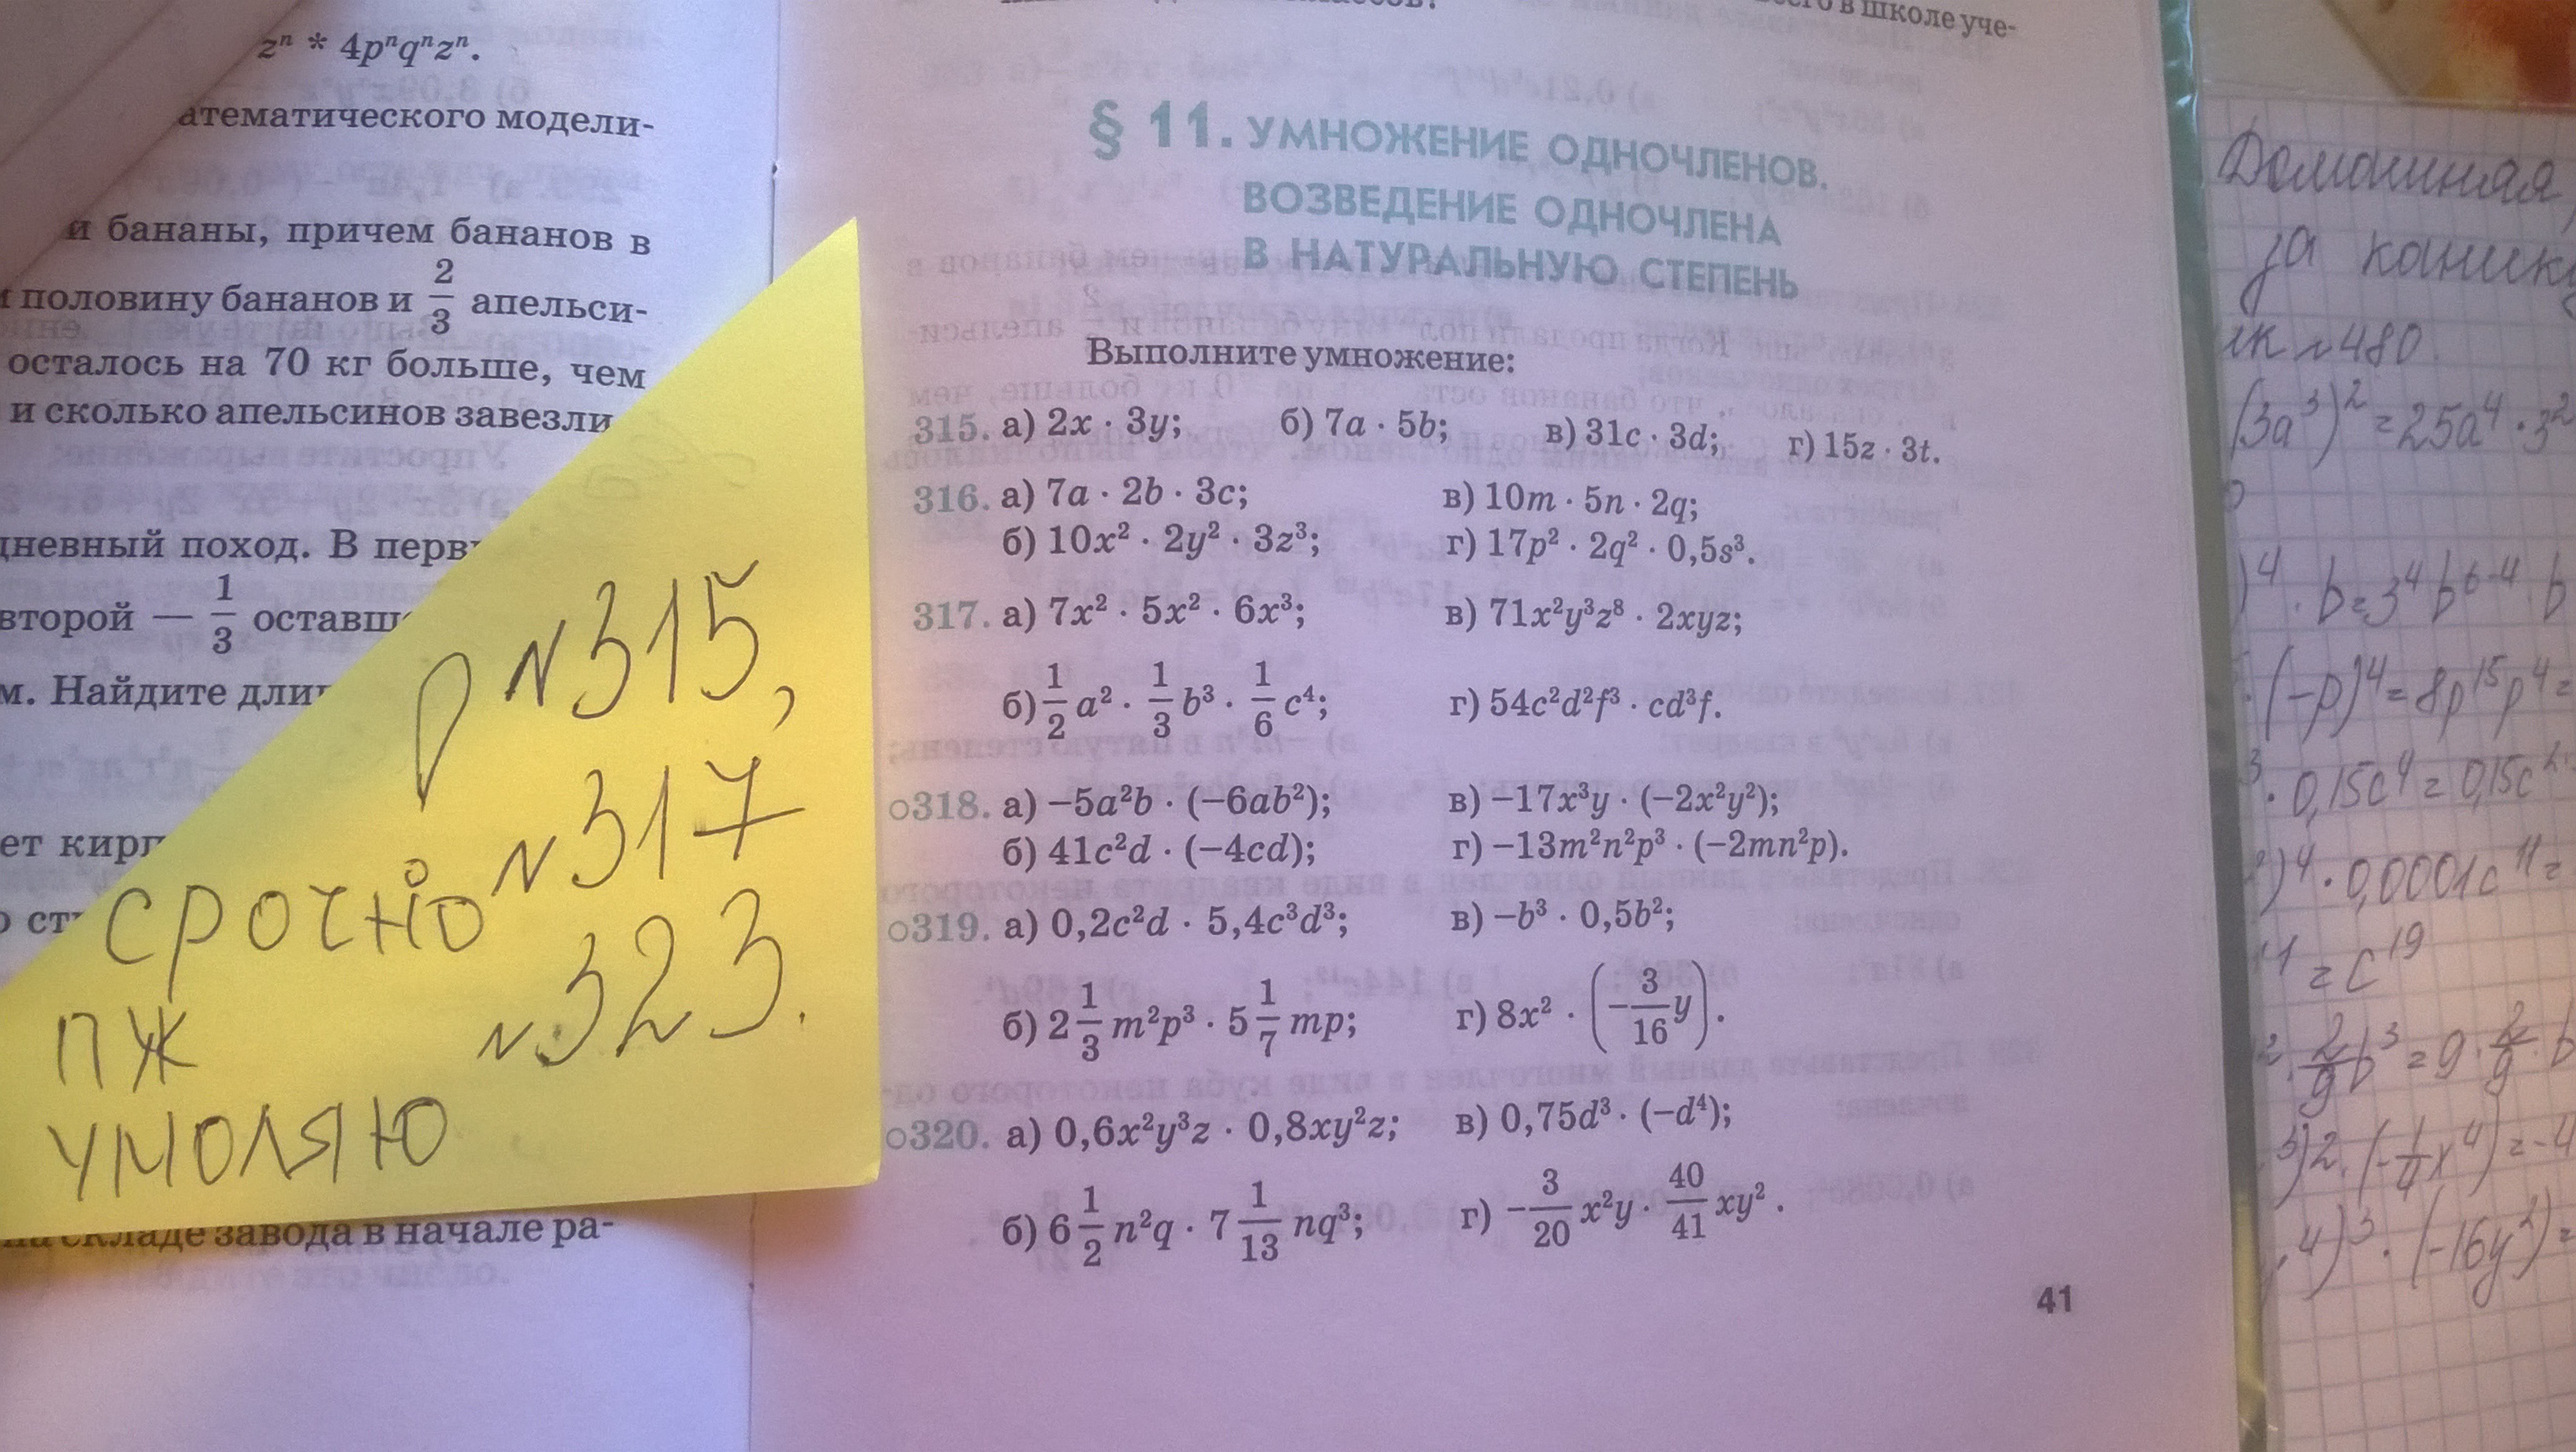 zⁿ * 4pⁿqⁿzⁿ.
атематического модели-
и бананы, причем бананов в
половину бананов и 2/3 апельси-
осталось на 70 кг больше, чем
и сколько апельсинов завезли
дневный поход. В перв
второй — 1/3 оставш
м. Найдите дли
ет кирп
складе завода в начале ра-
р №315,
№317
срочно
№323.
пж
умоляю
в школе уче-
§ 11. УМНОЖЕНИЕ ОДНОЧЛЕНОВ.
ВОЗВЕДЕНИЕ ОДНОЧЛЕНА
В НАТУРАЛЬНУЮ СТЕПЕНЬ
Выполните умножение:
315. а) 2x · 3y; б) 7a · 5b; в) 31c · 3d; г) 15z · 3t.
316. а) 7a · 2b · 3c; в) 10m · 5n · 2q;
б) 10x² · 2y² · 3z³; г) 17p² · 2q² · 0,5s³.
317. а) 7x² · 5x² · 6x³; в) 71x²y³z⁸ · 2xyz;
б) 1/2 a² · 1/3 b³ · 1/6 c⁴; г) 54c²d²f³ · cd³f.
о318. а) −5a²b · (−6ab²); в) −17x³y · (−2x²y²);
б) 41c²d · (−4cd); г) −13m²n²p³ · (−2mn²p).
о319. а) 0,2c²d · 5,4c³d³; в) −b³ · 0,5b²;
б) 2 1/3 m²p³ · 5 1/7 mp; г) 8x² · (−3/16 y).
о320. а) 0,6x²y³z · 0,8xy²z; в) 0,75d³ · (−d⁴);
б) 6 1/2 n²q · 7 1/13 nq³; г) −3/20 x²y · 40/41 xy².
41
Домашняя
за каник
№480.
(3a³)² = 25a⁴ · 3²
)⁴ · b = 3⁴b⁶⁻⁴ · b
· (−p)⁴ = 8p¹⁵p⁴ =
³ · 0,15c⁴ = 0,15c
)⁴ · 0,0001c¹¹ =
¹¹ = c¹⁹
² · 2/9 b³ = 9 · 2/9 · b
³)2 · (−1/4 x⁴) = −4
⁴)³ · (−16y²) =